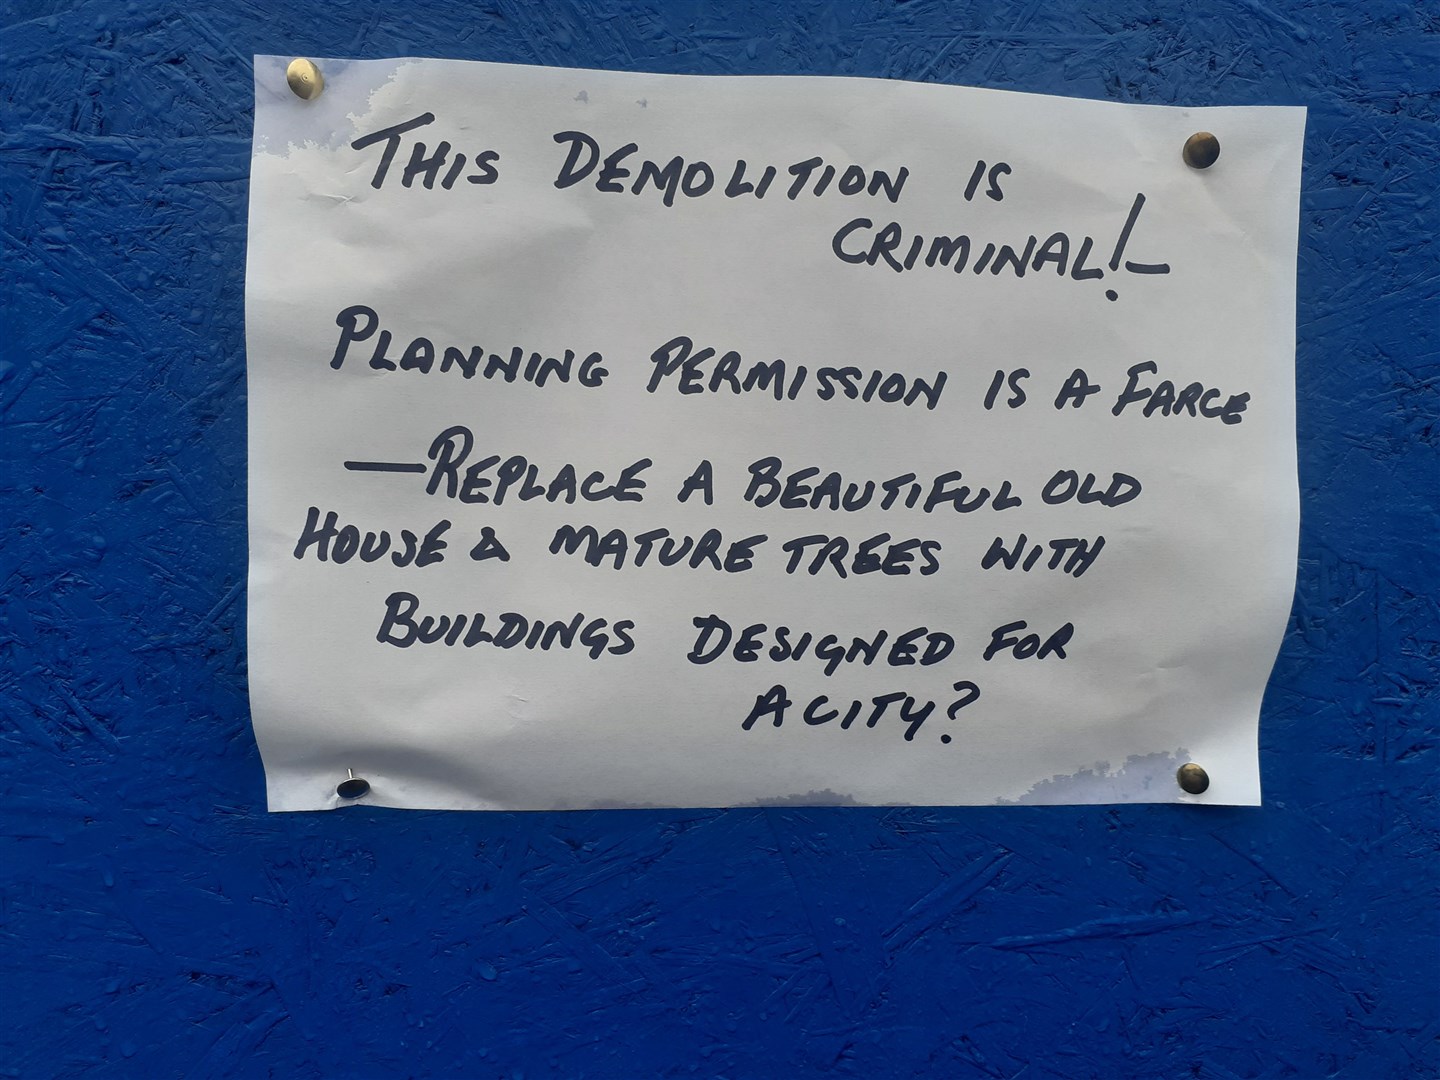 THIS DEMOLITION IS
CRIMINAL!—
PLANNING PERMISSION IS A FARCE
—REPLACE A BEAUTIFUL OLD
HOUSE & MATURE TREES WITH
BUILDINGS DESIGNED FOR
A CITY?